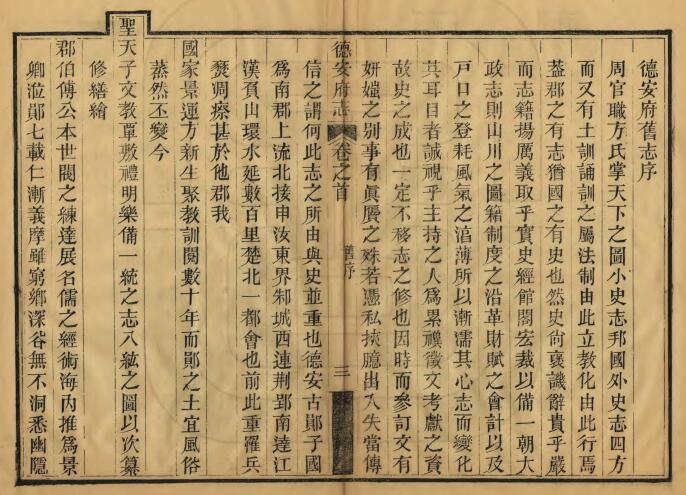 德安府舊志序
周官職方氏掌天下之圖小史志邦國外史志四方
而又有土訓誦訓之屬法制由此立教化由此行焉
葢郡之有志猶國之有史也然史尙褒譏辭貴乎嚴
而志籍揚厲義取乎實史經館閣宏裁以備一朝大
政志則山川之圖籍制度之沿革財賦之會計以及
戸口之登耗風氣之淳薄所以漸濡其心志而變化
其耳目者誠視乎主持之人爲累禩徵文考獻之資
故史之成也一定不移志之修也因時而參訂文有
妍媸之别事有眞贋之殊若憑私挾臆出入失當傳
德安府志
卷之首
舊序
三
信之謂何此志之所由與史並重也德安古鄖子國
爲南郡上流北接申汝東界邾城西連荆郢南達江
漢負山環水延數百里楚北一都會也前此重罹兵
燹凋瘵甚於他郡我
國家景運方新生聚教訓閱數十年而鄖之土宜風俗
蒸然丕變今
聖天子文教覃敷禮明樂備一統之志八紘之圖以次纂
修繕繪
郡伯傅公本世閥之練達展名儒之經術海内推爲景
卿涖鄖七載仁漸義摩雖窮鄉深谷無不洞悉幽隱